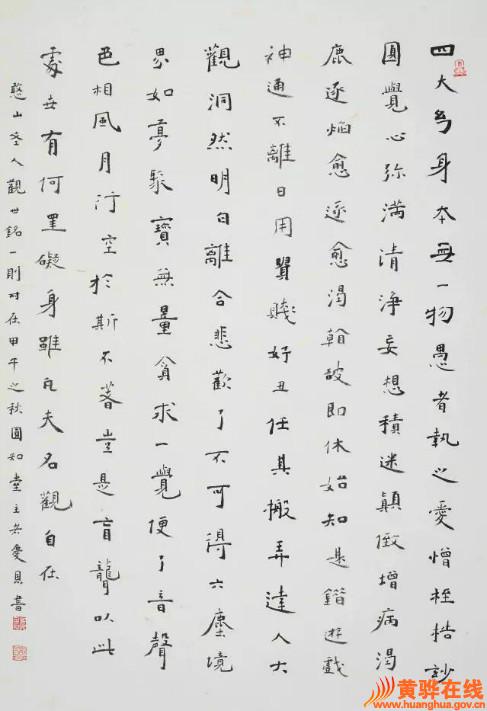 四大幻身本無一物愚者執之愛憎桎梏妙
圓覺心弥滿清淨妄想積迷顛倒增病渴
鹿逐焰愈逐愈渴翰破即休始知是錯遊戲
神通不離日用貴賤好丑任其搬弄達人大
觀洞然明白離合悲歡了不可得六塵境
界如夢聚寶無量貪求一覺便了音聲
色相風月行空於斯不著豈是盲聾以此
處世有何罣礙身雖凡夫名觀自在
憨山老人觀世銘一則时在甲午之秋圓知堂主
黄骅在线
www.huanghua.gov.cn